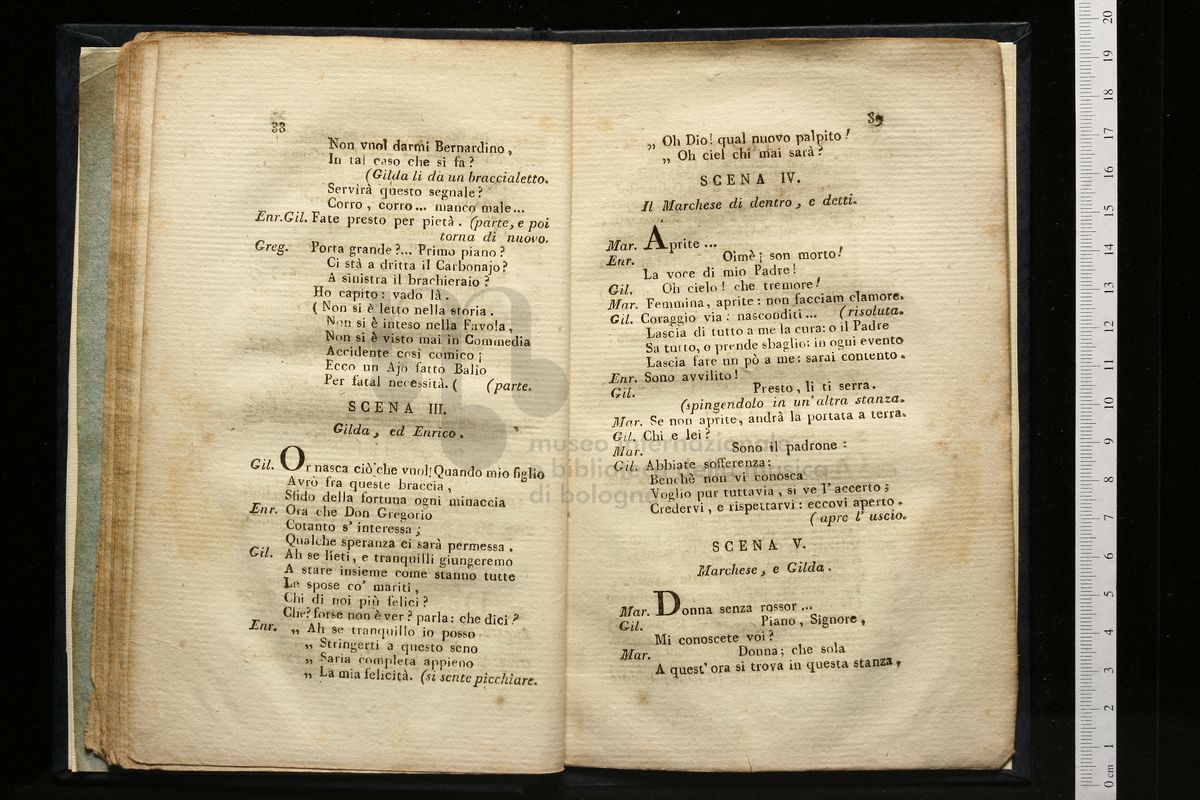 38
Non vuol darmi Bernardino,
In tal caso che si fa?
(Gilda li dà un braccialetto.
Servirà questo segnale?
Corro, corro... manco male...
Enr.Gil. Fate presto per pietà. (parte, e poi
torna di nuovo.
Greg. Porta grande?... Primo piano?
Ci stà a dritta il Carbonajo?
A sinistra il brachieraio?
Ho capito: vado là.
(Non si è letto nella storia.
Non si è inteso nella Favola,
Non si è visto mai in Commedia
Accidente così comico¡
Ecco un Ajo fatto Balio
Per fatal necessità. ( (parte.
SCENA III.
Gilda, ed Enrico.
Gil. Or nasca ciò che vuol! Quando mio figlio
Avrò fra queste braccia,
Sfido della fortuna ogni minaccia
Enr. Ora che Don Gregorio
Cotanto s' interessa;
Qualche speranza ci sarà permessa.
Gil. Ah se lieti, e tranquilli giungeremo
A stare insieme come stanno tutte
Le spose co' mariti,
Chi di noi più felici?
Che? forse non è ver? parla: che dici?
Enr. „ Ah se tranquillo io posso
„ Stringerti a questo seno
„ Saria completa appieno
„ La mia felicità. (si sente picchiare.
39
„ Oh Dio! qual nuovo palpito!
„ Oh ciel chi mai sarà?
SCENA IV.
Il Marchese di dentro, e detti.
Mar. Aprite ...
Enr. Oimè¡ son morto!
La voce di mio Padre!
Gil. Oh cielo! che tremore!
Mar. Femmina, aprite: non facciam clamore.
Gil. Coraggio via: nasconditi ... (risoluta.
Lascia di tutto a me la cura: o il Padre
Sa tutto, o prende sbaglio: in ogni evento
Lascia fare un pò a me: sarai contento.
Enr. Sono avvilito!
Gil. Presto, li ti serra.
(spingendolo in un' altra stanza.
Mar. Se non aprite, andrà la portata a terra.
Gil. Chi e lei?
Mar. Sono il padrone:
Gil. Abbiate sofferenza:
Benchè non vi conosca
Voglio pur tuttavia, si ve l' accerto;
Credervi, e rispettarvi: eccovi aperto.
(apre l' uscio.
SCENA V.
Marchese, e Gilda.
Mar. Donna senza rossor ...
Gil. Piano, Signore,
Mi conoscete voi?
Mar. Donna; che sola
A quest' ora si trova in questa stanza,
museo internazionale
e biblioteca della musica
di bologna
0 cm 1 2 3 4 5 6 7 8 9 10 11 12 13 14 15 16 17 18 19 20